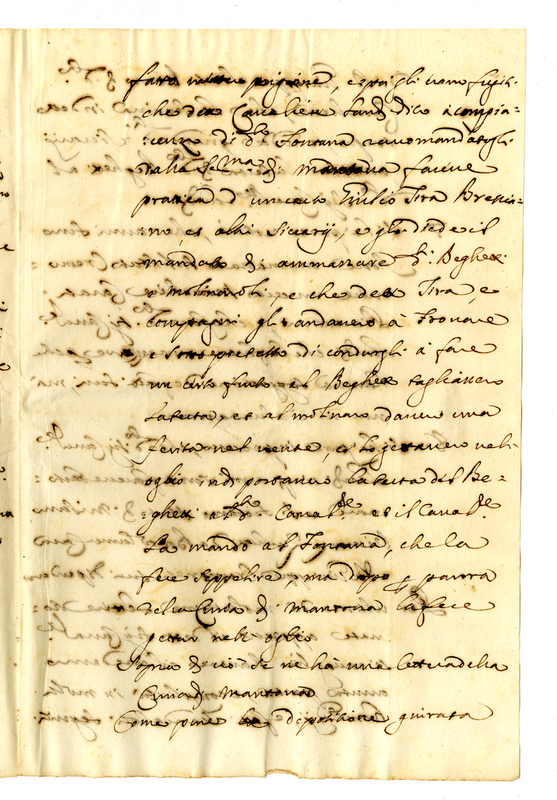 fatto metter prigione, e poi gli uomo fugiti.
che d.to Cavalier Land. dico à compia=
:cenza di d.to Fontana raccomandatogli
dalla Ser.ma di Mantova facesse
pratica d'un certo Emilio Tira Brescia=
:no, et altri Sicarij, e gli diede il
mandato di ammazare Beghet
e molinaroli e che detto Tira, e
Compagni gli andavero à trovare
e sotto pretesto di condurgli à fare
un certo furto al Beghet tagliassero
la testa, et al molinaro dasero una
ferita nel ventre, e lo gettavero nell'
oglio indi portavero la testa del Be=
:ghett a Cava.re et il Cava.re
la mandò al Fontana, che la
fece seppelire, ma dopo p paura
della Curia di Mantova la fece
gettar nell' oglio
Sopra di ciò se ne hà una lettera della
Curia di Mantova
Come pure depositione giurata